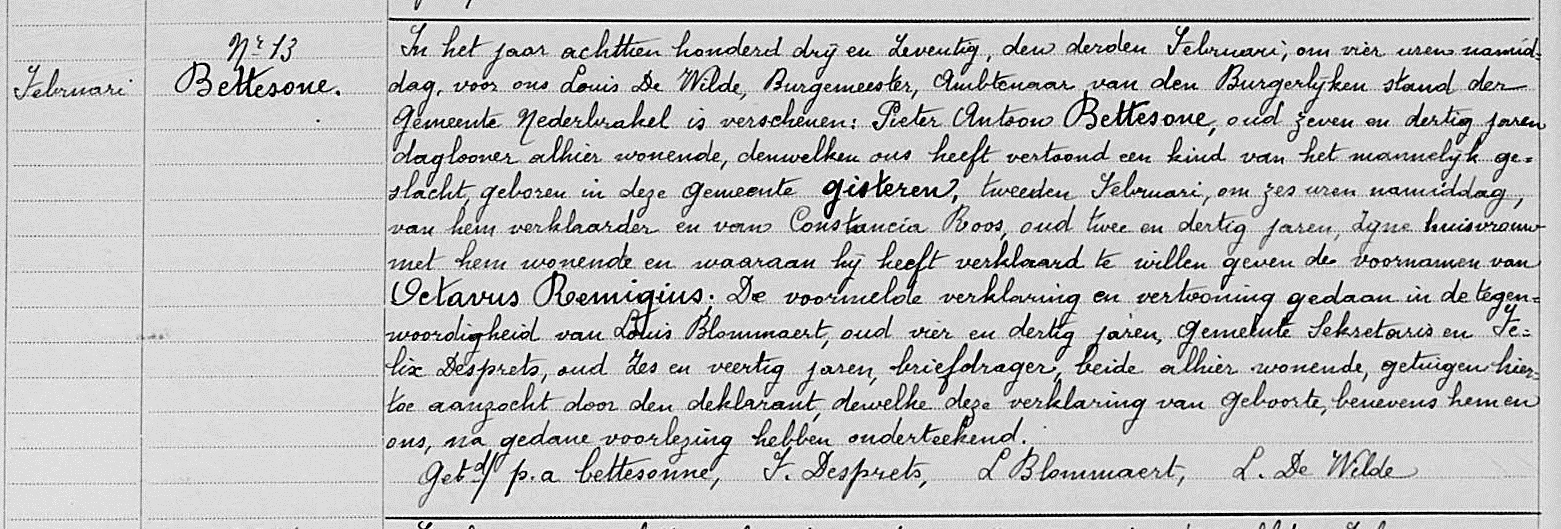 Nr 13
Februari
Bettesone.
In het jaar achttien honderd drij en zeventig, den derden Februari, om vier uren namid-
dag, voor ons Louis De Wilde, Burgemeester, Ambtenaar van den Burgerlijken stand der
Gemeente Nederbrakel is verschenen: Pieter Antoon Bettesone, oud zeven en dertig jaren
daglooner alhier wonende, denwelken ons heeft vertoond een kind van het mannelijk ge=
slacht, geboren in deze gemeente gisteren, tweeden Februari, om zes uren namiddag,
van hem verklaarder en van Constancia Roos, oud twee en dertig jaren, zijne huisvrouw
met hem wonende en waaraan hij heeft verklaard te willen geven de voornamen van
Octavus Remigius. De voormelde verklaring en vertooning gedaan in de tegen=
woordigheid van Louis Blommaert, oud vier en dertig jaren, gemeente Sekretaris en Fe=
lix Desprets, oud zes en veertig jaren, briefdrager, beide alhier wonende, getuigen hier=
toe aanzocht door den deklarant, dewelke deze verklaring van geboorte, benevens hem en
ons, na gedane voorlezing hebben onderteekend.
Getd/ p.a bettesonne, F. Desprets, L Blommaert, L. De Wilde